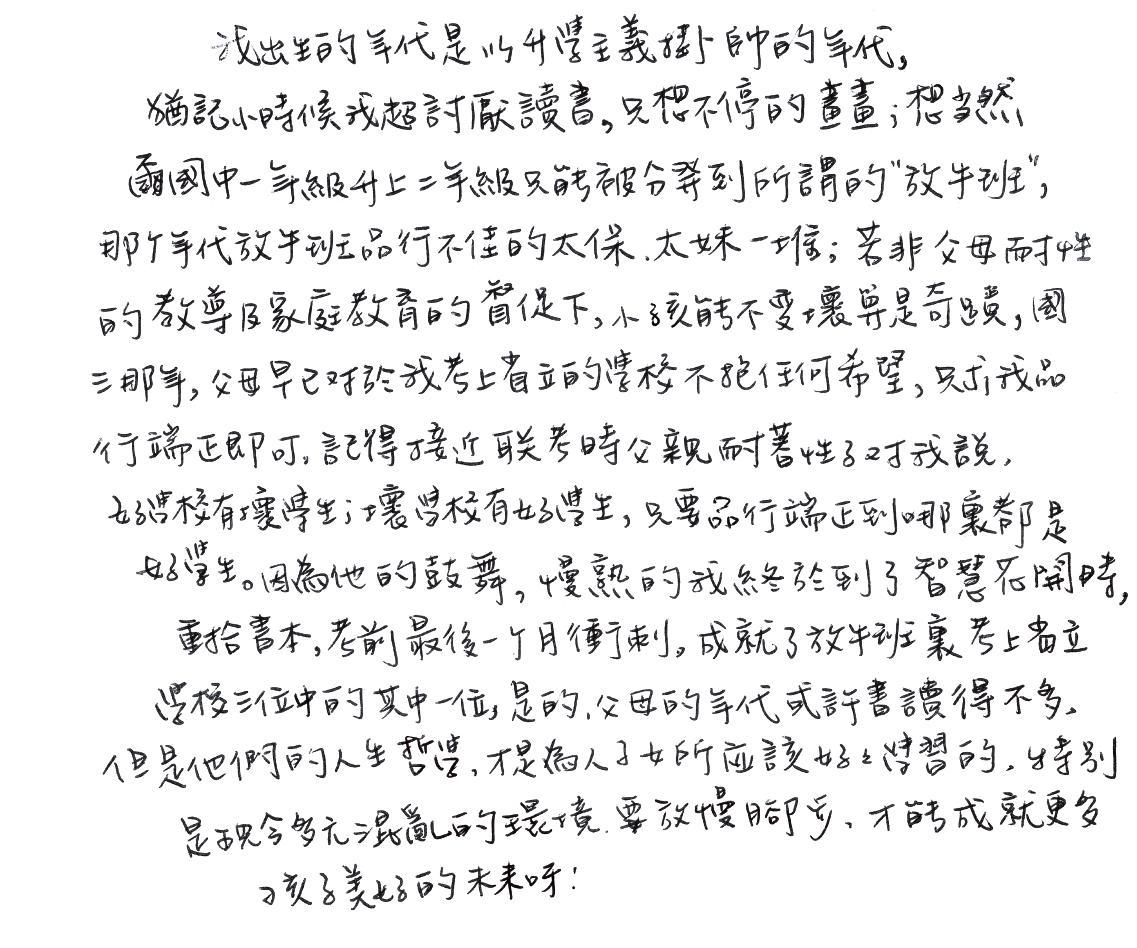 我出生的年代是以升學主義掛帥的年代,
猶記小時候我超討厭讀書,只想不停的畫畫;想当然
爾國中一年級升上二年級只能被分發到所謂的"放牛班",
那个年代放牛班品行不佳的太保、太妹一堆;若非父母耐性
的教導及家庭教育的督促下,小孩能不變壞算是奇蹟,國
三那年,父母早已对於我考上省立的學校不抱任何希望,只求我品
行端正即可,記得接近联考時父親耐著性子对我說,
好學校有壞學生;壞學校有好學生,只要品行端正到哪裏都是
好學生。因為他的鼓舞,慢熟的我終於到了智慧花開時,
重拾書本,考前最後一个月衝刺,成就了放牛班裏考上省立
學校三位中的其中一位,是的、父母的年代或許書讀得不多、
但是他們的人生哲學、才是為人子女所應該好好學習的、特別
是現今多元混亂的環境、要放慢腳步、才能成就更多
孩子美好的未來呀!